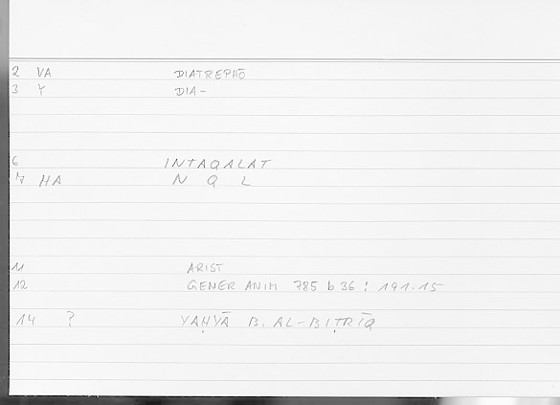 2 VA DIATREPHŌ
3 Y DIA-
6 INTAQALAT
7 HA N Q L
11 ARIST
12 GENER ANIM 785 b 36 : 191.15
14 ? YAḤYĀ B. AL-BIṬRĪQ